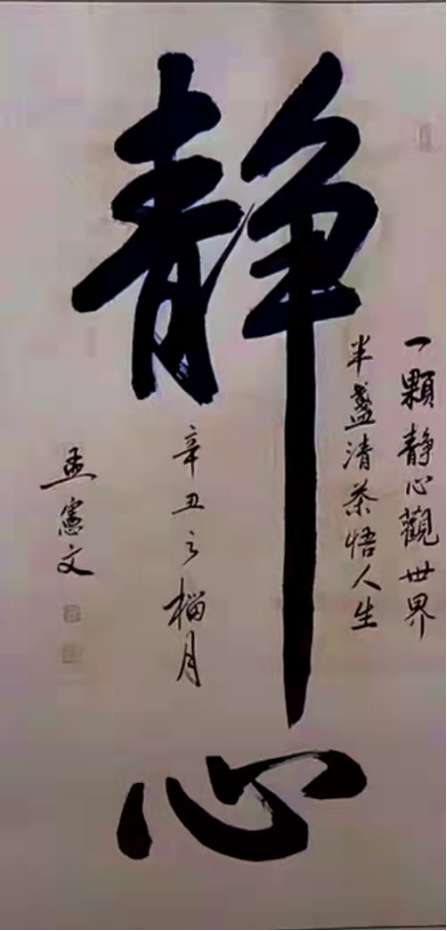 静心
一顆静心觀世界
半盞清茶悟人生
辛丑之榴月
孟憲文